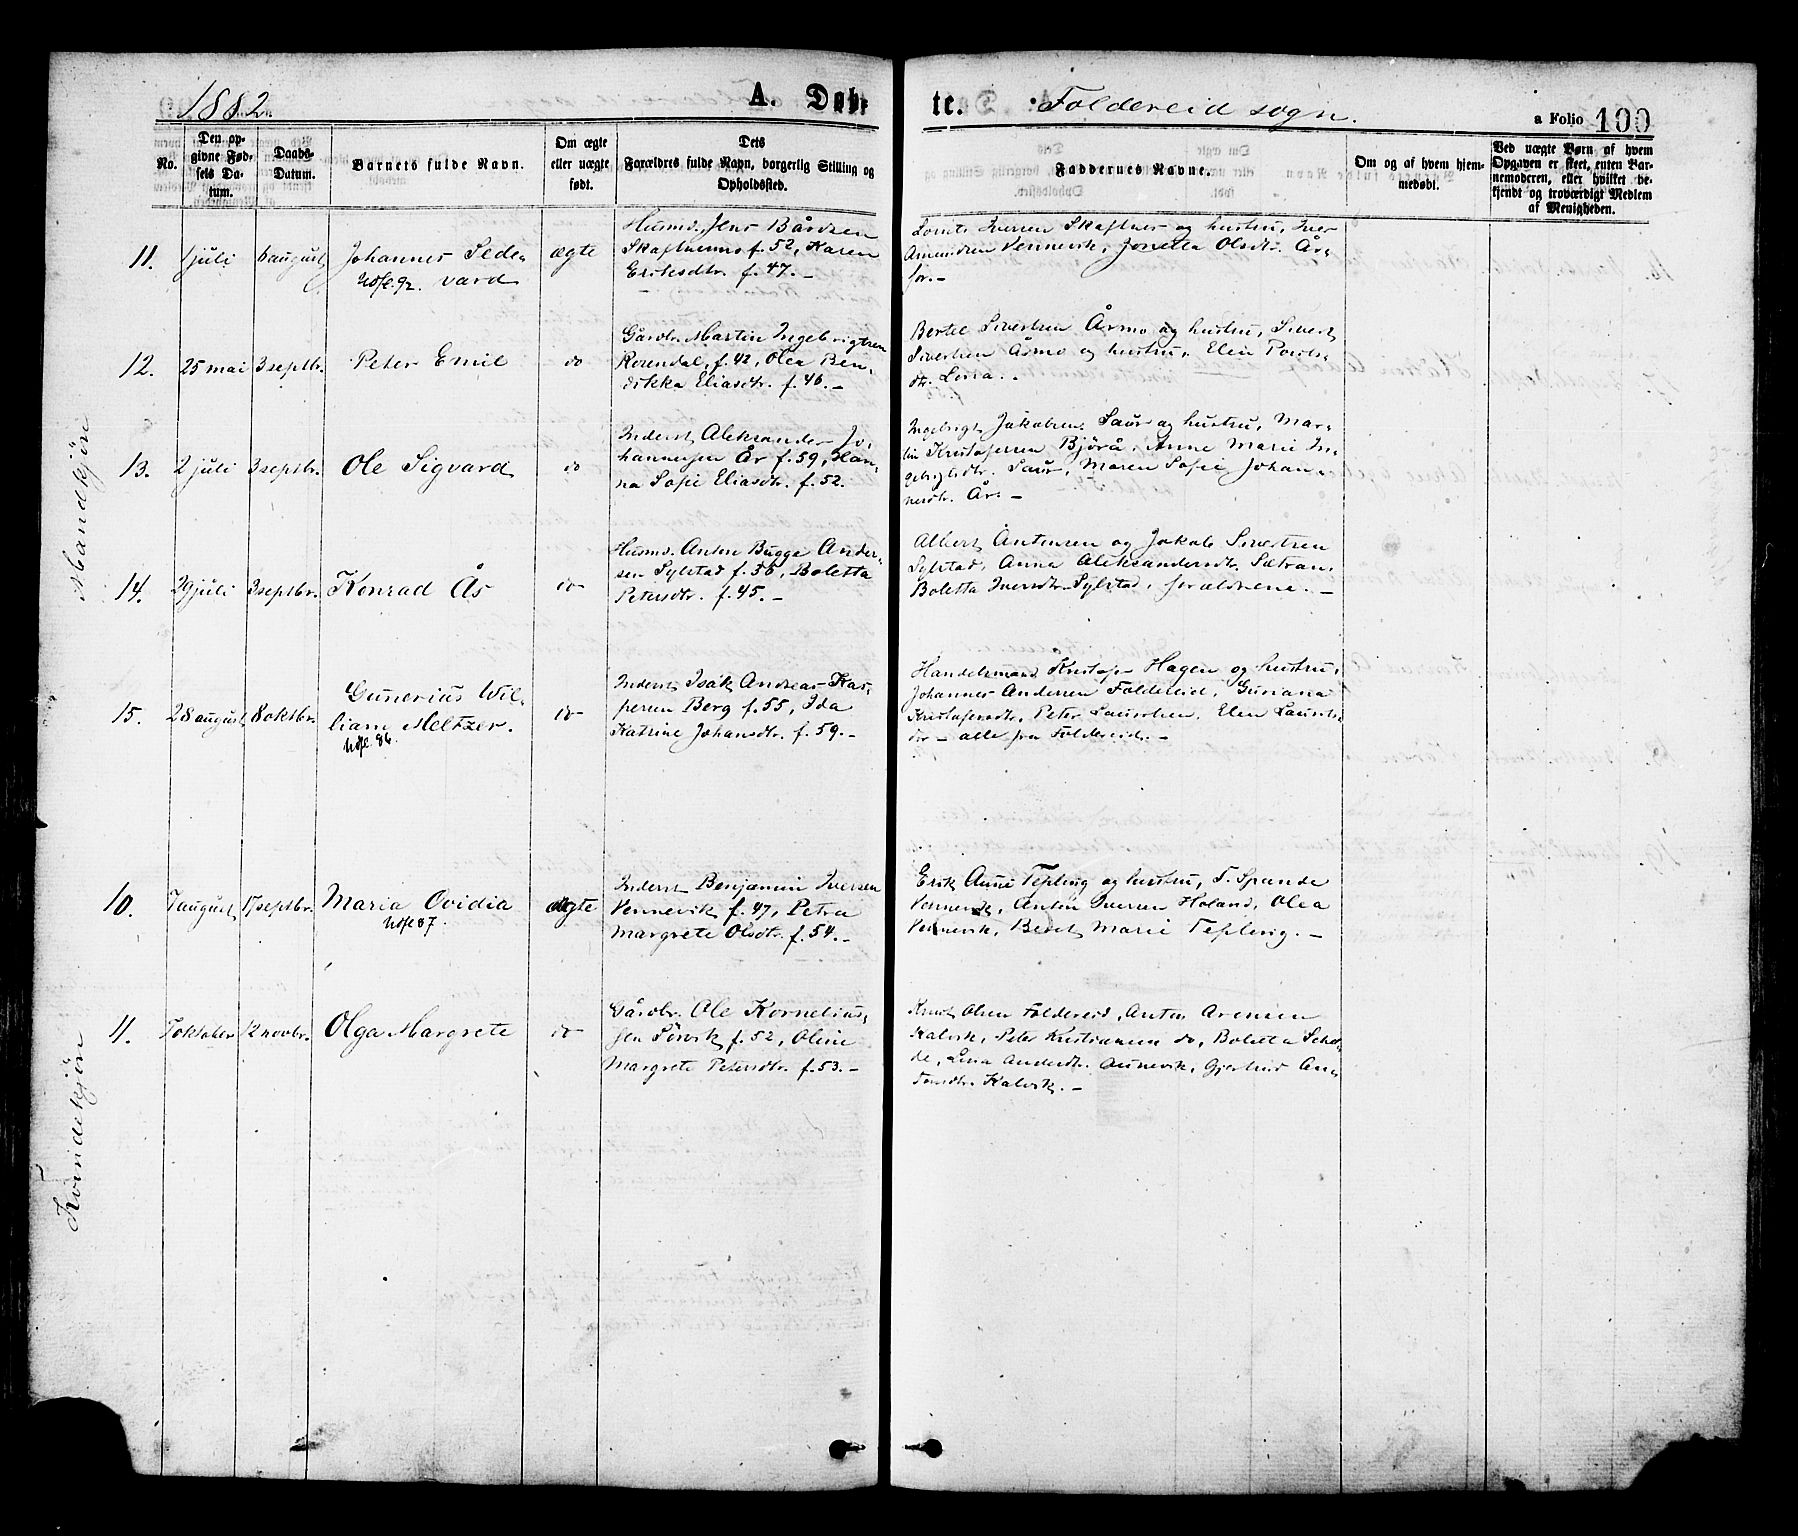 1882
A. Døb-
te.
Foldereid sogn.
a Folio 100
No.
Den op-
givne Fød-
sels Da-
tum.
Daabs-
Datum.
Barnets fulde Navn.
Om ægte
eller uægte
født.
Dets
Forældres fulde Navn, borgerlig Stilling og
Opholdssted.
Faddernes Navne.
Om og af hvem hjem-
medøbt.
Ved uægte Børn af hvem
Opgaven er skeet, enten Bar-
nemoderen, eller hvilket be-
kjendt og troværdigt Medlem
af Menigheden.
Mandkjön
11. 1 juli 6 august Johannes Sede-
vard
ægte
Husmd. Jens Bårdsen
Skaftnesmo f. 52, Karen
Eriksdtr. f. 47. -
Iversen Skaftnes og hustru, Iver
Amundsen Vennevik, Jonetta Olsdtr. År-
for. -
12. 25 mai 3 septbr. Peter Emil do
Gårdbr. Martin Ingebrigtsen
Rosendal, f. 42, Olea Ben-
dikka Eliasdtr. f. 46. -
Bertel Sivertsen Årmo og hustru, Sivert
Sivertsen Årmo og hustru, Elen Povels-
dtr. Lona. -
13. 2 juli 3 septbr. Ole Sigvard do
Inderst Aleksander Jo-
hannesen År f. 59, Han-
na Sofie Eliasdtr. f. 52.
Ingebrigt Jakobsen Saur og hustru, Mar-
tin Kristofersen Björå, Anne Marie In-
gebrigtsdtr. Saur, Maren Sofie Johan-
nesdtr. År. -
14. 29 juli 3 septbr. Konrad Ås do
Husmd. Anton Bugge Ander-
sen Sylstad f. 56, Boletta
Petersdtr. f. 45. -
Albert Antonsen og Jakob Sivertsen
Sylstad, Anna Aleksandersdtr. Sætran,
Boletta Iversdtr. Sylstad, forældrene. -
15. 28 august 8 oktbr. Gunerius Wil-
liam Meltzer.
do
Inderst Isak Andreas Kas-
persen Berg f. 55, Ida
Katrine Johansdtr. f. 59. -
Handelsmand Kristofer Hagen og hustru,
Johannes Andersen Foldereid, Guriana
Kristofersdtr., Peter Lauritsen, Elen Laurits-
dtr - alle fra Foldereid. -
Kvindekjön
10. 7 august 17 septbr. Maria Ovidia ægte
Inderst Benjamin Iversen
Vennevik f. 47, Petra
Margrete Olsdtr. f. 54. -
Erik Teplling og hustru, T. Spande
Vennevik, Anton Iversen Holand, Olea
Vennevik, Beret Marie Tepling. -
11. 7 oktober 12 novbr. Olga Margrete do
Gårdbr. Ole Kornelius-
sen Sörvik f. 52, Oline
Margrete Petersdtr. f. 53. -
Knut Olsen Foldereid, Anton Arensen
Kalvik, Peter Kristiansen do, Boletta
Lina Andersdtr. Aunevik, Gjertrud An-
tonsdtr. Kalvik. -